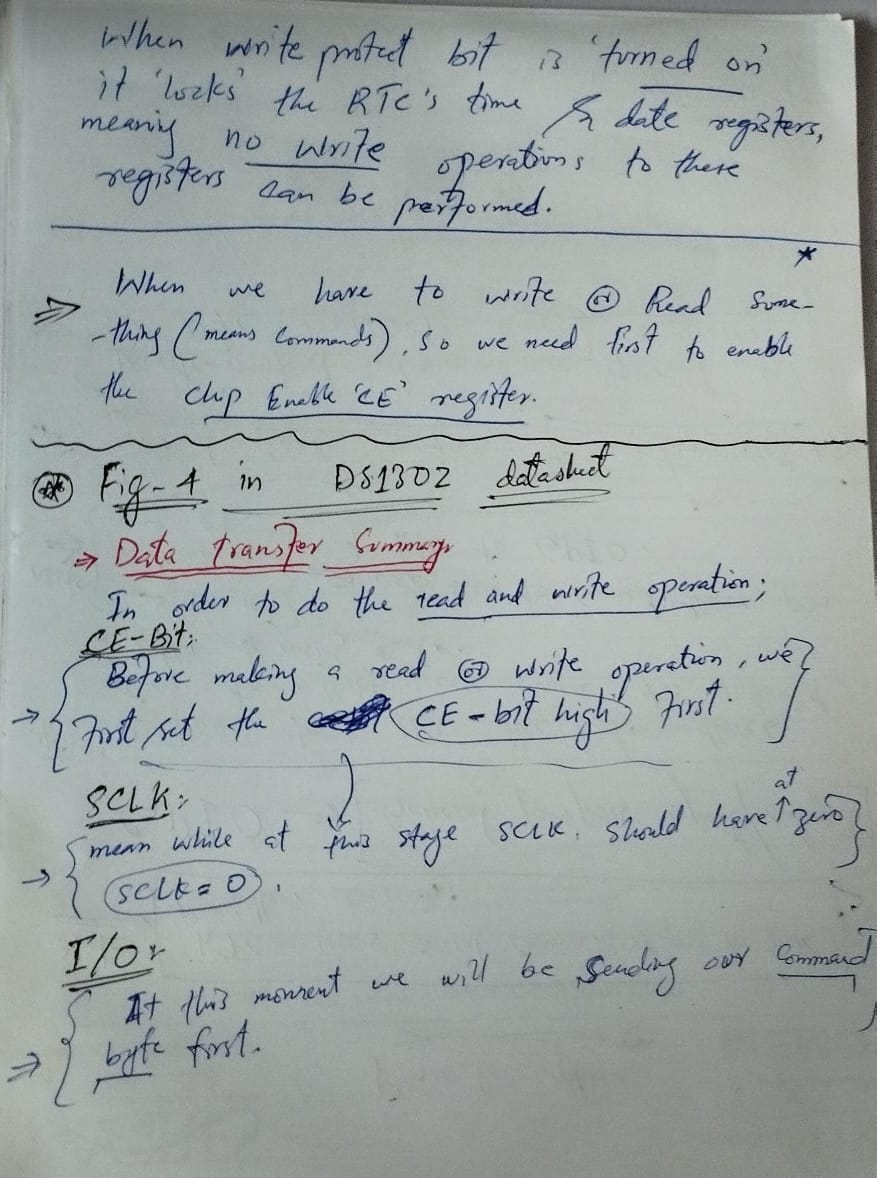 When write protect bit is 'turned on'
it 'locks' the RTC's time & date registers,
meaning no write operations to these
registers can be performed.
*
⇒ When we have to write or Read Some-
-thing (means Commands), So we need first to enable
the chip Enable 'CE' register.
Fig-4 in DS1302 datasheet
⇒ Data transfer Summary
In order to do the read and write operation;
CE-Bit:
Before making a read or write operation, we
→ First set the CE-bit high First.
SCLK:
at
mean while at this stage SCLK. Should have ↑ zero
→ SCLK = 0.
I/O:
At this moment we will be Sending our Command
⇒ byte first.